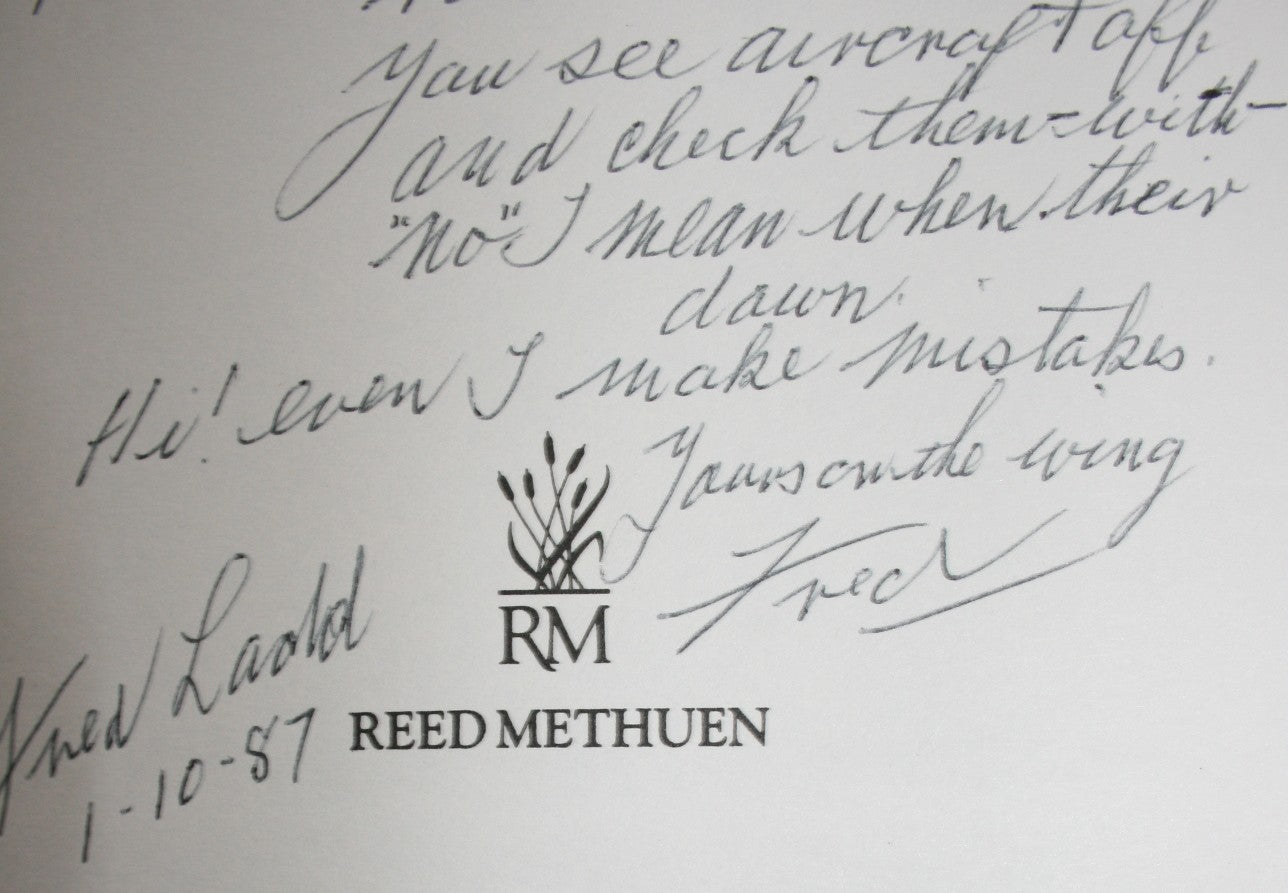 You see aircraft off
and check them-with-
"no" I mean when their
down.
Hi! even I make mistakes.
Yours on the wing
Fred
Fred Ladd
1-10-87
RM
REED METHUEN